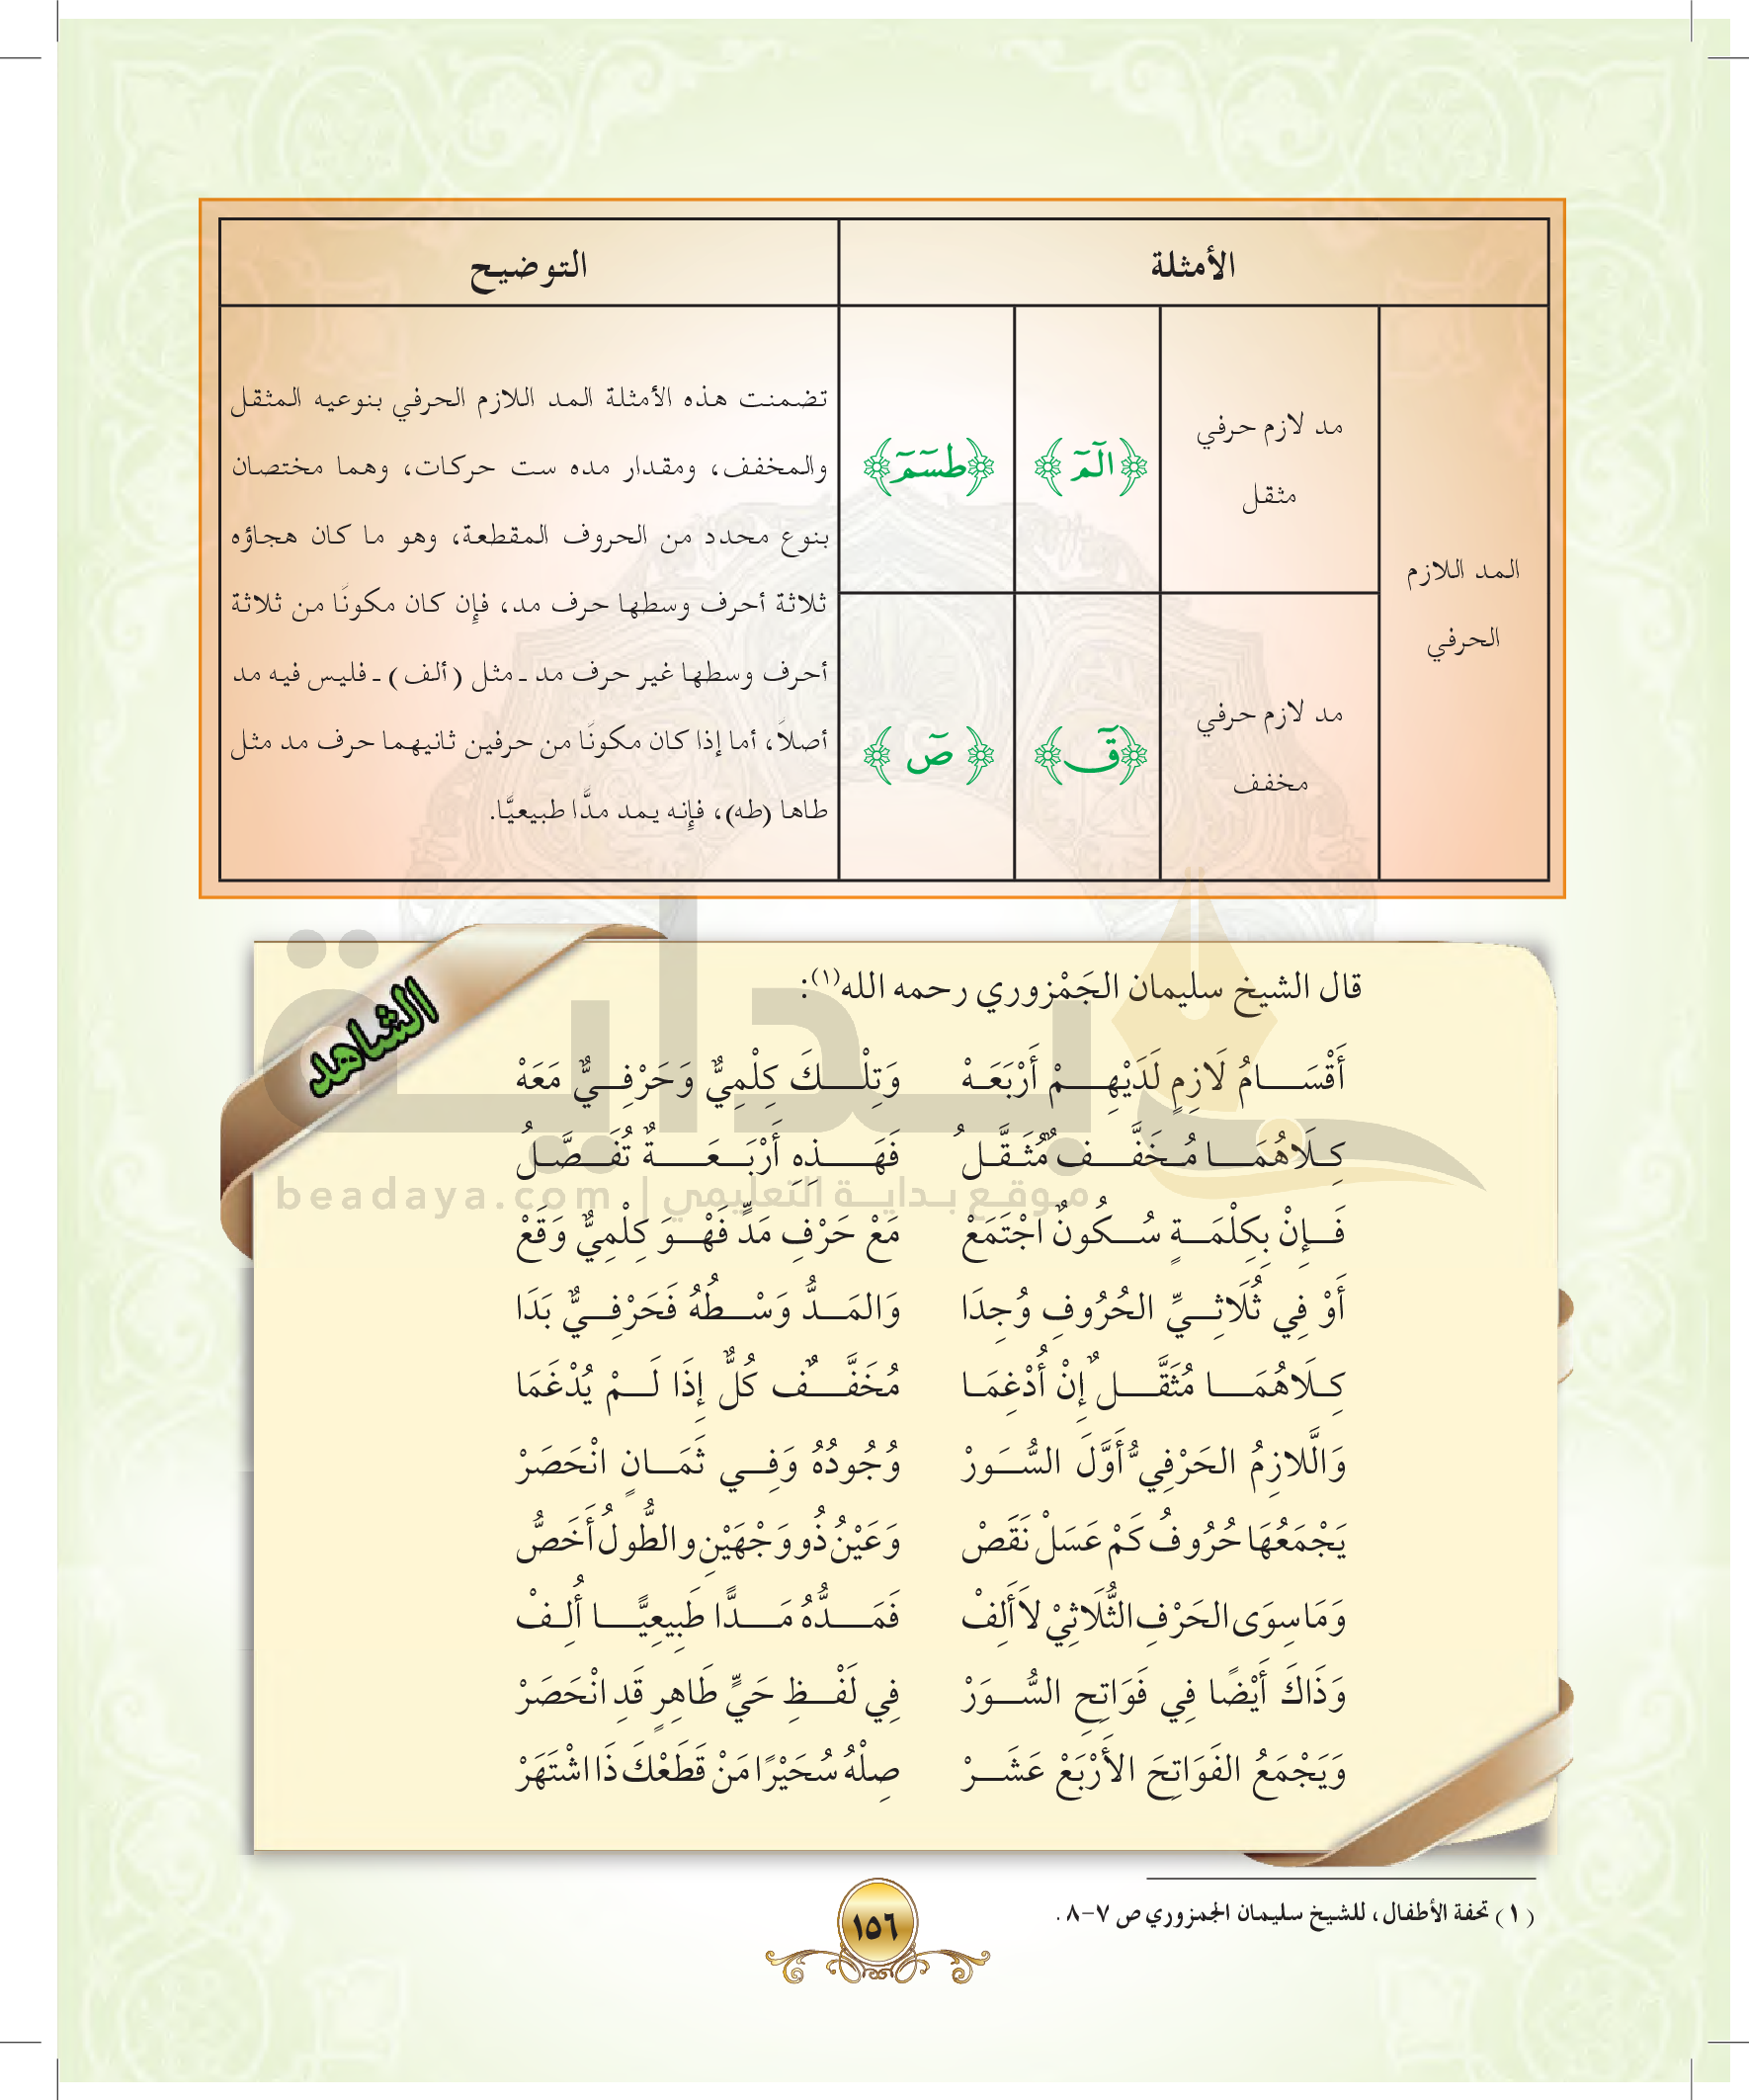 الأمثلة
التوضيح
المد اللازم
الحرفي
مد لازم حرفي
مثقل
﴿الٓمٓ﴾
﴿طسٓمٓ﴾
مد لازم حرفي
مخفف
﴿قٓ﴾
﴿صٓ﴾
تضمنت هذه الأمثلة المد اللازم الحرفي بنوعيه المثقل
والمخفف، ومقدار مده ست حركات، وهما مختصان
بنوع محدد من الحروف المقطعة، وهو ما كان هجاؤه
ثلاثة أحرف وسطها حرف مد، فإن كان مكونًا من ثلاثة
أحرف وسطها غير حرف مد ـ مثل (ألف) ـ فليس فيه مد
أصلاً، أما إذا كان مكونًا من حرفين ثانيهما حرف مد مثل
طاها (طه)، فإنه يمد مدًّا طبيعيًّا.
الشاهد
قال الشيخ سليمان الجَمْزوري رحمه الله(١):
أَقْسَـــامُ لَازِمٍ لَدَيْهِـــمْ أَرْبَعَـهْ وَتِلْـــكَ كِلْمِيٌّ وَحَرْفِـيٌّ مَعَهْ
كِـلَاهُمَـــا مُـخَفَّـــفٌ مُثَـقَّـلُ فَهَـــذِهِ أَرْبَـــعَـــةٌ تُفَـــصَّـلُ
فَـإِنْ بِكِلْمَـةٍ سُـكُونٌ اجْتَمَعْ مَعْ حَرْفِ مَدٍّ فَهْـوَ كِلْمِيٌّ وَقَعْ
أَوْ فِي ثُلَاثِـيِّ الحُرُوفِ وُجِدَا وَالمَـدُّ وَسْـطُهُ فَحَرْفِـيٌّ بَدَا
كِـلَاهُمَـــا مُثَقَّـــلٌ إِنْ أُدْغِمَـا مُخَفَّـــفٌ كُلٌّ إِذَا لَـــمْ يُدْغَمَا
وَالَّلازِمُ الحَرْفِيُّ أَوَّلَ السُّـوَرْ وُجُودُهُ وَفِـي ثَمَـانٍ انْحَصَرْ
يَجْمَعُهَا حُرُوفُ كَمْ عَسَلْ نَقَصْ وَعَيْنُ ذُو وَجْهَيْنِ والطُّولُ أَخَصُّ
وَمَا سِوَى الحَرْفِ الثُّلَاثِيْ لاَ أَلِفْ فَمَـــدُّهُ مَـــدًّا طَبِيعِيًّـــا أُلِـفْ
وَذَاكَ أَيْضًا فِي فَوَاتِحِ السُّـوَرْ فِي لَفْـظِ حَيٍّ طَاهِرٍ قَدِ انْحَصَرْ
وَيَجْمَعُ الفَوَاتِحَ الأَرْبَعْ عَشَـرْ صِلْهُ سُحَيْرًا مَنْ قَطَعْكَ ذَا اشْتَهَرْ
بداية
beadaya.com | موقع بداية التعليمي
(١) تحفة الأطفال، للشيخ سليمان الجمزوري ص ٧-٨ .
١٥٦